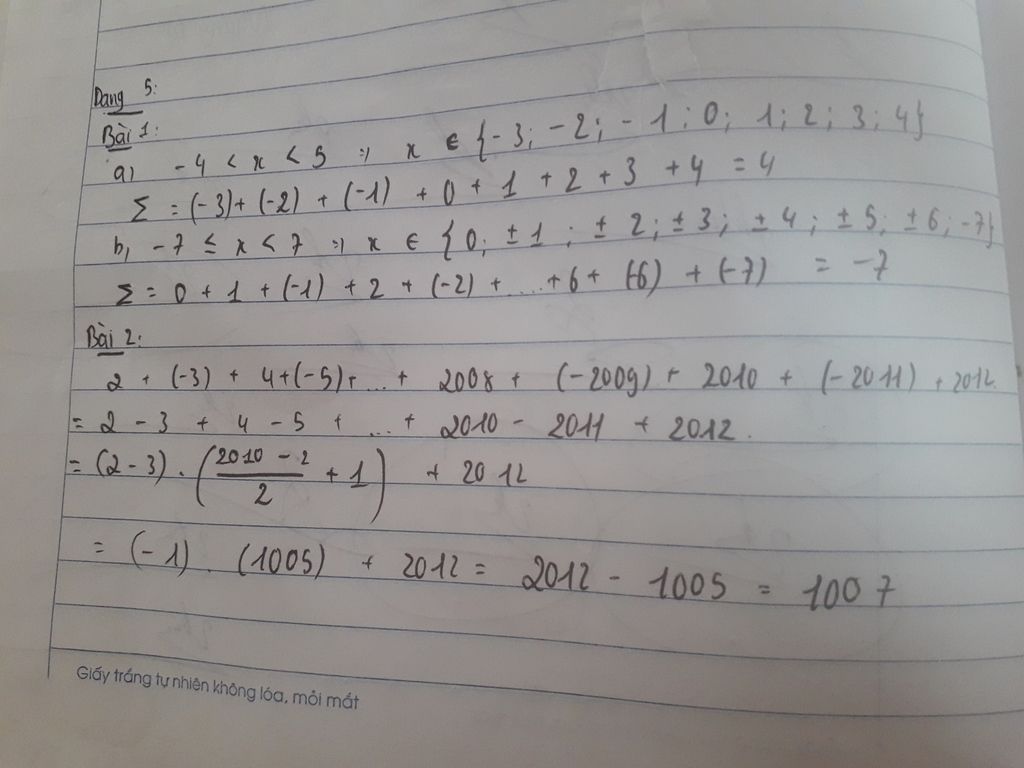 Dạng 5:
Bài 1:
a, -4 < x < 5 => x ∈ {-3; -2; -1; 0; 1; 2; 3; 4}
Σ = (-3)+ (-2) + (-1) + 0 + 1 + 2 + 3 + 4 = 4
b, -7 ≤ x < 7 => x ∈ {0; ±1; ±2; ±3; ±4; ±5; ±6; -7}
Σ = 0 + 1 + (-1) + 2 + (-2) + ... + 6 + (-6) + (-7) = -7
Bài 2:
2 + (-3) + 4+(-5)+ ... + 2008 + (-2009) + 2010 + (-2011) + 2012.
= 2 - 3 + 4 - 5 + ... + 2010 - 2011 + 2012.
= (2-3) . ((2010 - 2)/2 + 1) + 2012
= (-1) . (1005) + 2012 = 2012 - 1005 = 1007
Giấy trắng tự nhiên không lóa, mỏi mắt